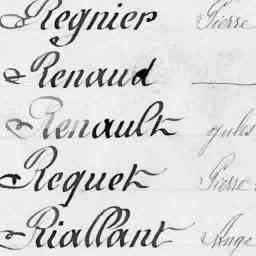 Regnier Pierre
Renaud
Renault Jules
Requet Pierre
Riallant Ange